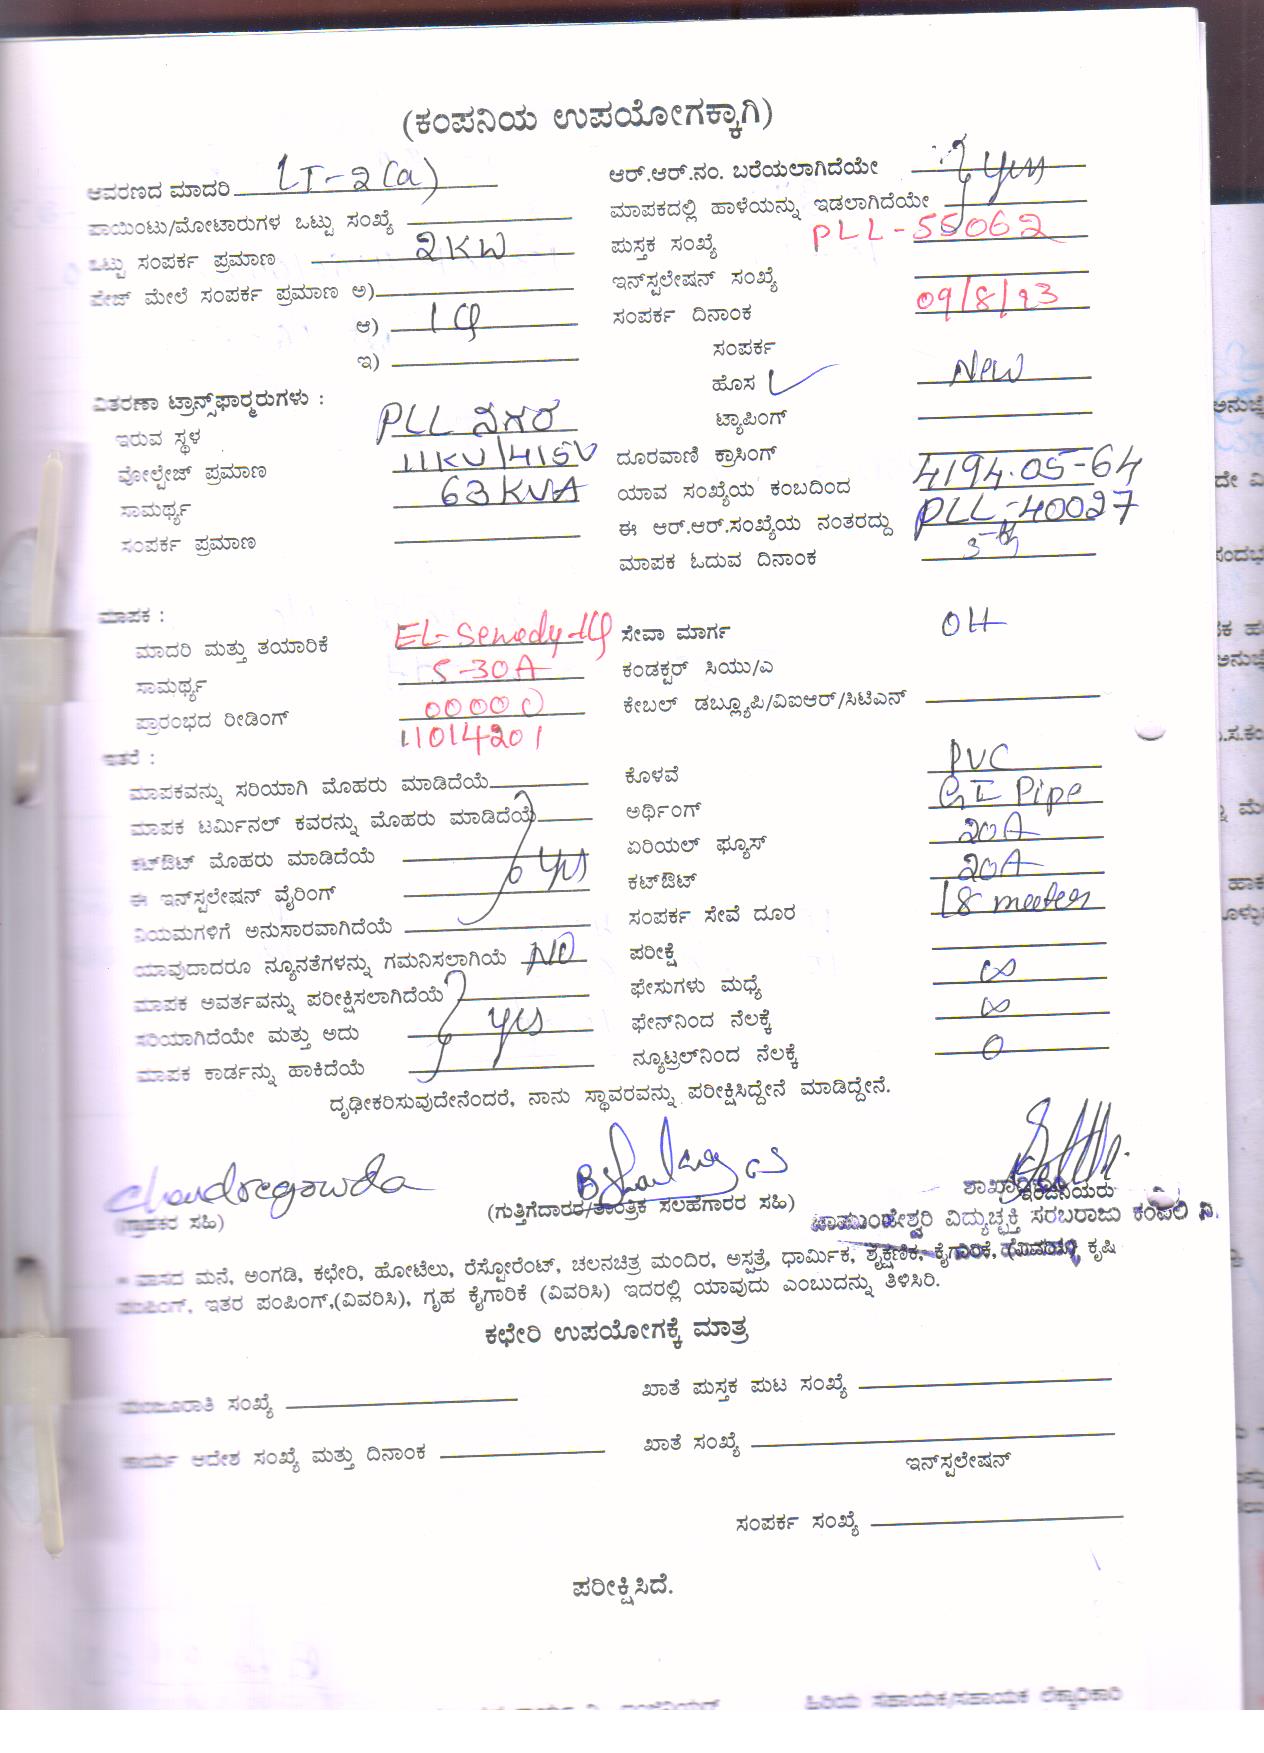 (ಕಂಪನಿಯ ಉಪಯೋಗಕ್ಕಾಗಿ)
ಆವರಣದ ಮಾದರಿ LT-2(a)
ಪಾಯಿಂಟು/ಮೋಟಾರುಗಳ ಒಟ್ಟು ಸಂಖ್ಯೆ
ಒಟ್ಟು ಸಂಪರ್ಕ ಪ್ರಮಾಣ 2KW
ಪೇಜ್ ಮೇಲೆ ಸಂಪರ್ಕ ಪ್ರಮಾಣ ಅ)
ಆ) 1φ
ಇ)
ವಿತರಣಾ ಟ್ರಾನ್ಸ್‌ಫಾರ್‍ಮರುಗಳು :
ಇರುವ ಸ್ಥಳ PLL ನಗರ
ವೋಲ್ಟೇಜ್ ಪ್ರಮಾಣ 11KV/415V
ಸಾಮರ್ಥ್ಯ 63KVA
ಸಂಪರ್ಕ ಪ್ರಮಾಣ
ಆರ್.ಆರ್.ನಂ. ಬರೆಯಲಾಗಿದೆಯೇ yes
ಮಾಪಕದಲ್ಲಿ ಹಾಳೆಯನ್ನು ಇಡಲಾಗಿದೆಯೇ
ಪುಸ್ತಕ ಸಂಖ್ಯೆ PLL-55062
ಇನ್‌ಸ್ಟಲೇಷನ್ ಸಂಖ್ಯೆ
ಸಂಪರ್ಕ ದಿನಾಂಕ 09/8/23
ಸಂಪರ್ಕ
ಹೊಸ New
ಟ್ಯಾಪಿಂಗ್
ದೂರವಾಣಿ ಕ್ರಾಸಿಂಗ್
ಯಾವ ಸಂಖ್ಯೆಯ ಕಂಬದಿಂದ 4194.05-64
ಈ ಆರ್.ಆರ್.ಸಂಖ್ಯೆಯ ನಂತರದ್ದು PLL-40027
ಮಾಪಕ ಓದುವ ದಿನಾಂಕ 3-th
ಮಾಪಕ :
ಮಾದರಿ ಮತ್ತು ತಯಾರಿಕೆ
ಸಾಮರ್ಥ್ಯ 5-30A
ಪ್ರಾರಂಭದ ರೀಡಿಂಗ್ 00000
11014201
ಇತರೆ :
ಮಾಪಕವನ್ನು ಸರಿಯಾಗಿ ಮೊಹರು ಮಾಡಿದೆಯೆ
ಮಾಪಕ ಟರ್ಮಿನಲ್ ಕವರನ್ನು ಮೊಹರು ಮಾಡಿದೆಯೆ
ಕಟ್‌ಔಟ್ ಮೊಹರು ಮಾಡಿದೆಯೆ yes
ಈ ಇನ್‌ಸ್ಟಲೇಷನ್ ವೈರಿಂಗ್
ನಿಯಮಗಳಿಗೆ ಅನುಸಾರವಾಗಿದೆಯೆ
ಯಾವುದಾದರೂ ನ್ಯೂನತೆಗಳನ್ನು ಗಮನಿಸಲಾಗಿಯೆ NO
ಮಾಪಕ ಅವರ್ತವನ್ನು ಪರೀಕ್ಷಿಸಲಾಗಿದೆಯೆ
ಸರಿಯಾಗಿದೆಯೇ ಮತ್ತು ಅದು yes
ಮಾಪಕ ಕಾರ್ಡನ್ನು ಹಾಕಿದೆಯೆ
ಸೇವಾ ಮಾರ್ಗ OH
ಕಂಡಕ್ಟರ್ ಸಿಯು/ಎ
ಕೇಬಲ್ ಡಬ್ಲ್ಯೂಪಿ/ವಿಐಆರ್/ಸಿಟಿಎಸ್
ಕೊಳವೆ PVC
ಅರ್ಥಿಂಗ್ GI Pipe
ಏರಿಯಲ್ ಫ್ಯೂಸ್ 20A
ಕಟ್‌ಔಟ್ 20A
ಸಂಪರ್ಕ ಸೇವೆ ದೂರ 18 meeters
ಪರೀಕ್ಷೆ
ಫೇಸುಗಳು ಮಧ್ಯೆ ∞
ಫೇಸ್‌ನಿಂದ ನೆಲಕ್ಕೆ ∞
ನ್ಯೂಟ್ರಲ್‌ನಿಂದ ನೆಲಕ್ಕೆ 0
ದೃಢೀಕರಿಸುವುದೇನೆಂದರೆ, ನಾನು ಸ್ಥಾವರವನ್ನು ಪರೀಕ್ಷಿಸಿದ್ದೇನೆ ಮಾಡಿದ್ದೇನೆ.
Chandregowda
(ಗ್ರಾಹಕರ ಸಹಿ)
(ಗುತ್ತಿಗೆದಾರರ/ತಾಂತ್ರಿಕ ಸಲಹೆಗಾರರ ಸಹಿ)
ಶಾಖಾ ಇಂಜಿನಿಯರು
ಚಾಮುಂಡೇಶ್ವರಿ ವಿದ್ಯುಚ್ಛಕ್ತಿ ಸರಬರಾಜು ಕಂಪನಿ ನಿ.
* ವಾಸದ ಮನೆ, ಅಂಗಡಿ, ಕಛೇರಿ, ಹೋಟೆಲು, ರೆಸ್ಟೋರೆಂಟ್, ಚಲನಚಿತ್ರ ಮಂದಿರ, ಅಸ್ಪತ್ರೆ, ಧಾರ್ಮಿಕ, ಶೈಕ್ಷಣಿಕ, ಕೈಗಾರಿಕೆ, (ವಿವರಿಸಿ) ಕೃಷಿ
ಪಂಪಿಂಗ್, ಇತರ ಪಂಪಿಂಗ್,(ವಿವರಿಸಿ), ಗೃಹ ಕೈಗಾರಿಕೆ (ವಿವರಿಸಿ) ಇದರಲ್ಲಿ ಯಾವುದು ಎಂಬುದನ್ನು ತಿಳಿಸಿರಿ.
ಕಛೇರಿ ಉಪಯೋಗಕ್ಕೆ ಮಾತ್ರ
ಮಂಜೂರಾತಿ ಸಂಖ್ಯೆ
ಖಾತೆ ಪುಸ್ತಕ ಪುಟ ಸಂಖ್ಯೆ
ಕಾರ್ಯ ಆದೇಶ ಸಂಖ್ಯೆ ಮತ್ತು ದಿನಾಂಕ
ಖಾತೆ ಸಂಖ್ಯೆ
ಇನ್‌ಸ್ಟಲೇಷನ್
ಸಂಪರ್ಕ ಸಂಖ್ಯೆ
ಪರೀಕ್ಷಿಸಿದೆ.
ಹಿರಿಯ ಸಹಾಯಕ/ಸಹಾಯಕ ಲೆಕ್ಕಾಧಿಕಾರಿ